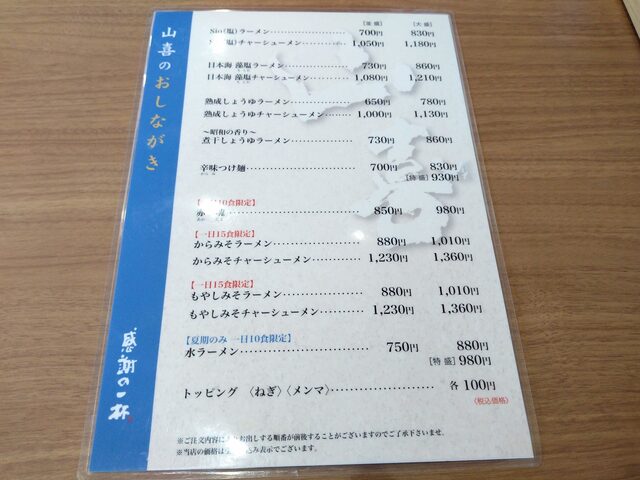 山喜のおしながき
感謝の一杯
[並盛] [大盛]
Sio(塩)ラーメン 700円 830円
塩)チャーシューメン 1,050円 1,180円
日本海 藻塩ラーメン 730円 860円
日本海 藻塩チャーシューメン 1,080円 1,210円
熟成しょうゆラーメン 650円 780円
熟成しょうゆチャーシューメン 1,000円 1,130円
～昭和の香り～
煮干しょうゆラーメン 730円 860円
辛味つけ麺 700円 830円
[特盛] 930円
10食限定】
850円 980円
【一日15食限定】
からみそラーメン 880円 1,010円
からみそチャーシューメン 1,230円 1,360円
【一日15食限定】
もやしみそラーメン 880円 1,010円
もやしみそチャーシューメン 1,230円 1,360円
【夏期のみ 一日10食限定】
水ラーメン 750円 880円
[特盛] 980円
トッピング 〈ねぎ〉〈メンマ〉 各 100円
(税込価格)
※ご注文内容に お出しする順番が前後することがございますのでご了承下さいませ。
※当店の価格は 込み表示でございます。